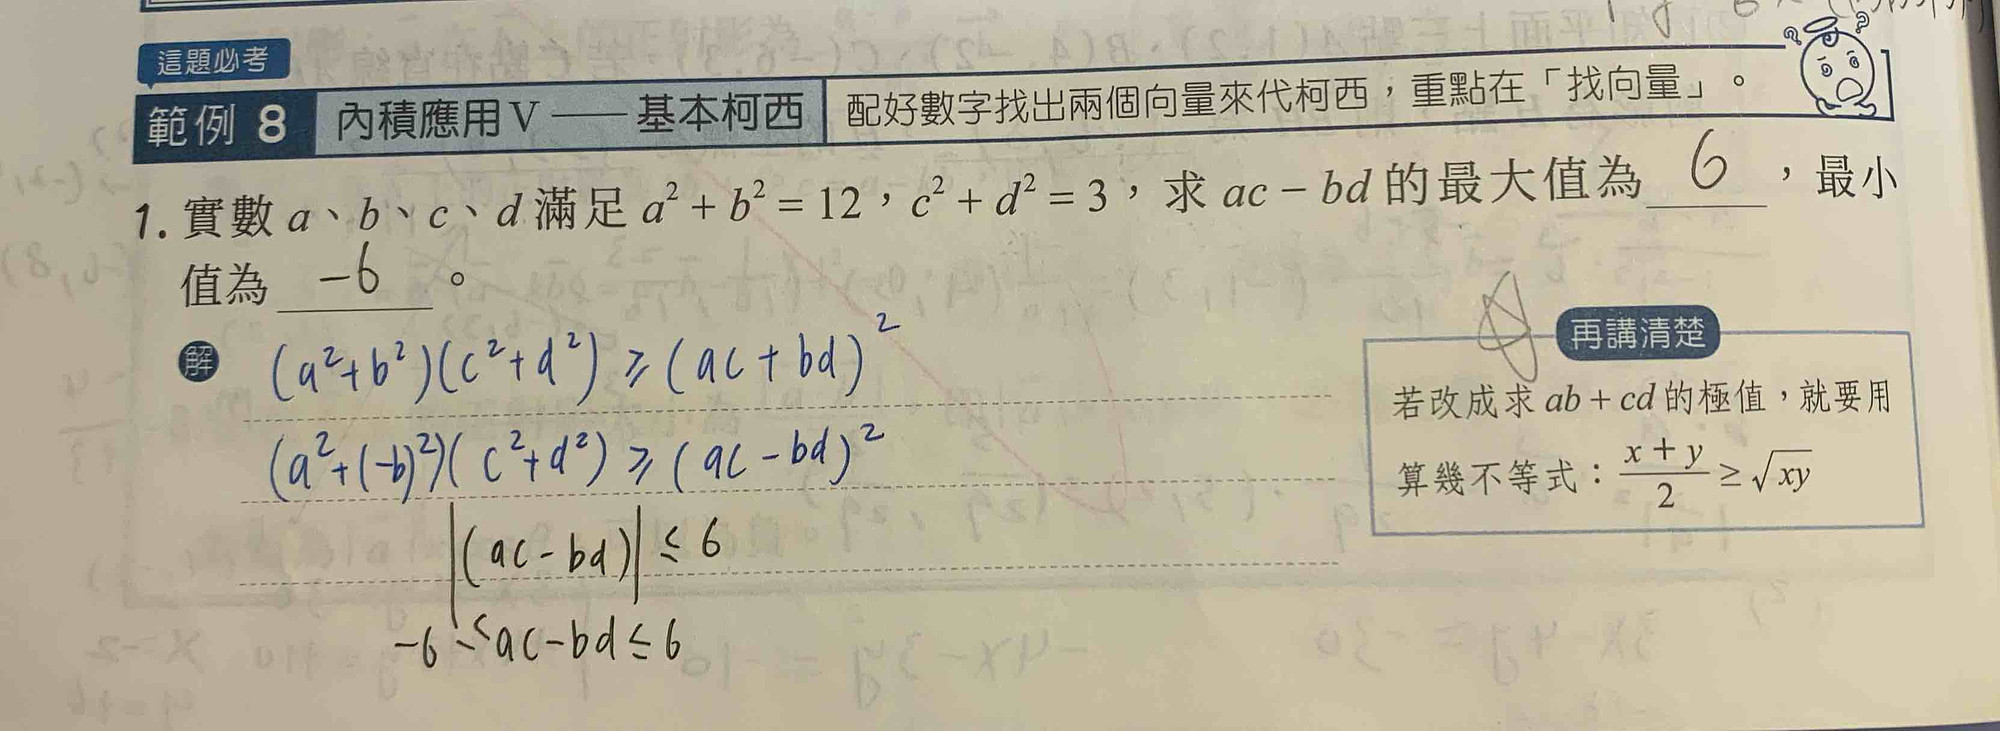 這題必考
範例 8 內積應用 V —— 基本柯西 配好數字找出兩個向量來代柯西，重點在「找向量」。
1. 實數 a、b、c、d 滿足 a² + b² = 12，c² + d² = 3，求 ac − bd 的最大值為 6 ，最小
值為 −6 。
解 (a²+b²)(c²+d²) ≥ (ac+bd)²
(a²+(-b)²)(c²+d²) ≥ (ac-bd)²
|(ac-bd)| ≤ 6
-6 ≤ ac-bd ≤ 6
再講清楚
若改成求 ab + cd 的極值，就要用
算幾不等式：(x + y)/2 ≥ √xy